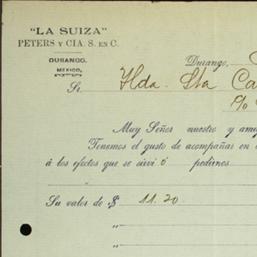 "LA SUIZA"
PETERS Y CIA. S. EN C.
DURANGO.
MEXICO.
Durango,
Sr. Hda. Sta Ca
P/o
Muy Señor nuestro y ami
Tenemos el gusto de acompañar en
á los efectos que se sirvió pedirnos
Su valor de $ 11.20